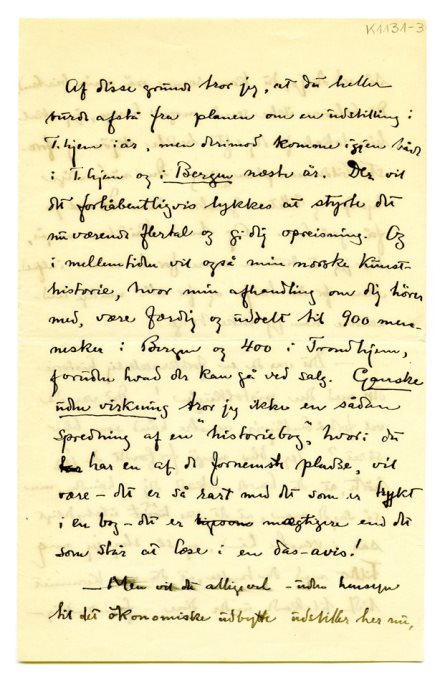 K1131-3
Af disse grunde tror jeg, at du heller
burde afstå fra planen om en udstilling i
T.hjem i år, men derimod komme igjen både
i T.hjem og i Bergen næste år. Der vil
det forhåbentligvis lykkes at styrte det
nuværende flertal og gi dig opreisning. Og
i mellemtiden vil også min norske kunst-
historie, hvor min afhandling om dig hører
med, være færdig og uddelt til 900 men-
nesker i Bergen og 400 i Trondhjem,
foruden hvad der kan gå ved salg. Ganske
uden virkning tror jeg ikke en sådan
spredning af en "historiebog", hvori du
har en af de fornemste pladse, vil
være – det er så rart med det som er trykt
i en bog – det er mægtigere end det
som står at læse i en das-avis!
– Men vil du alligevel – uden hensyn
til det økonomiske udbytte udstiller her nu,